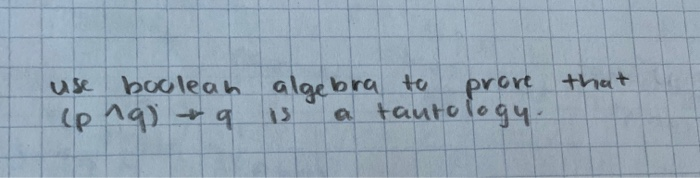 use boolean algebra to prove that
(p ^ q) → q is a tautology.